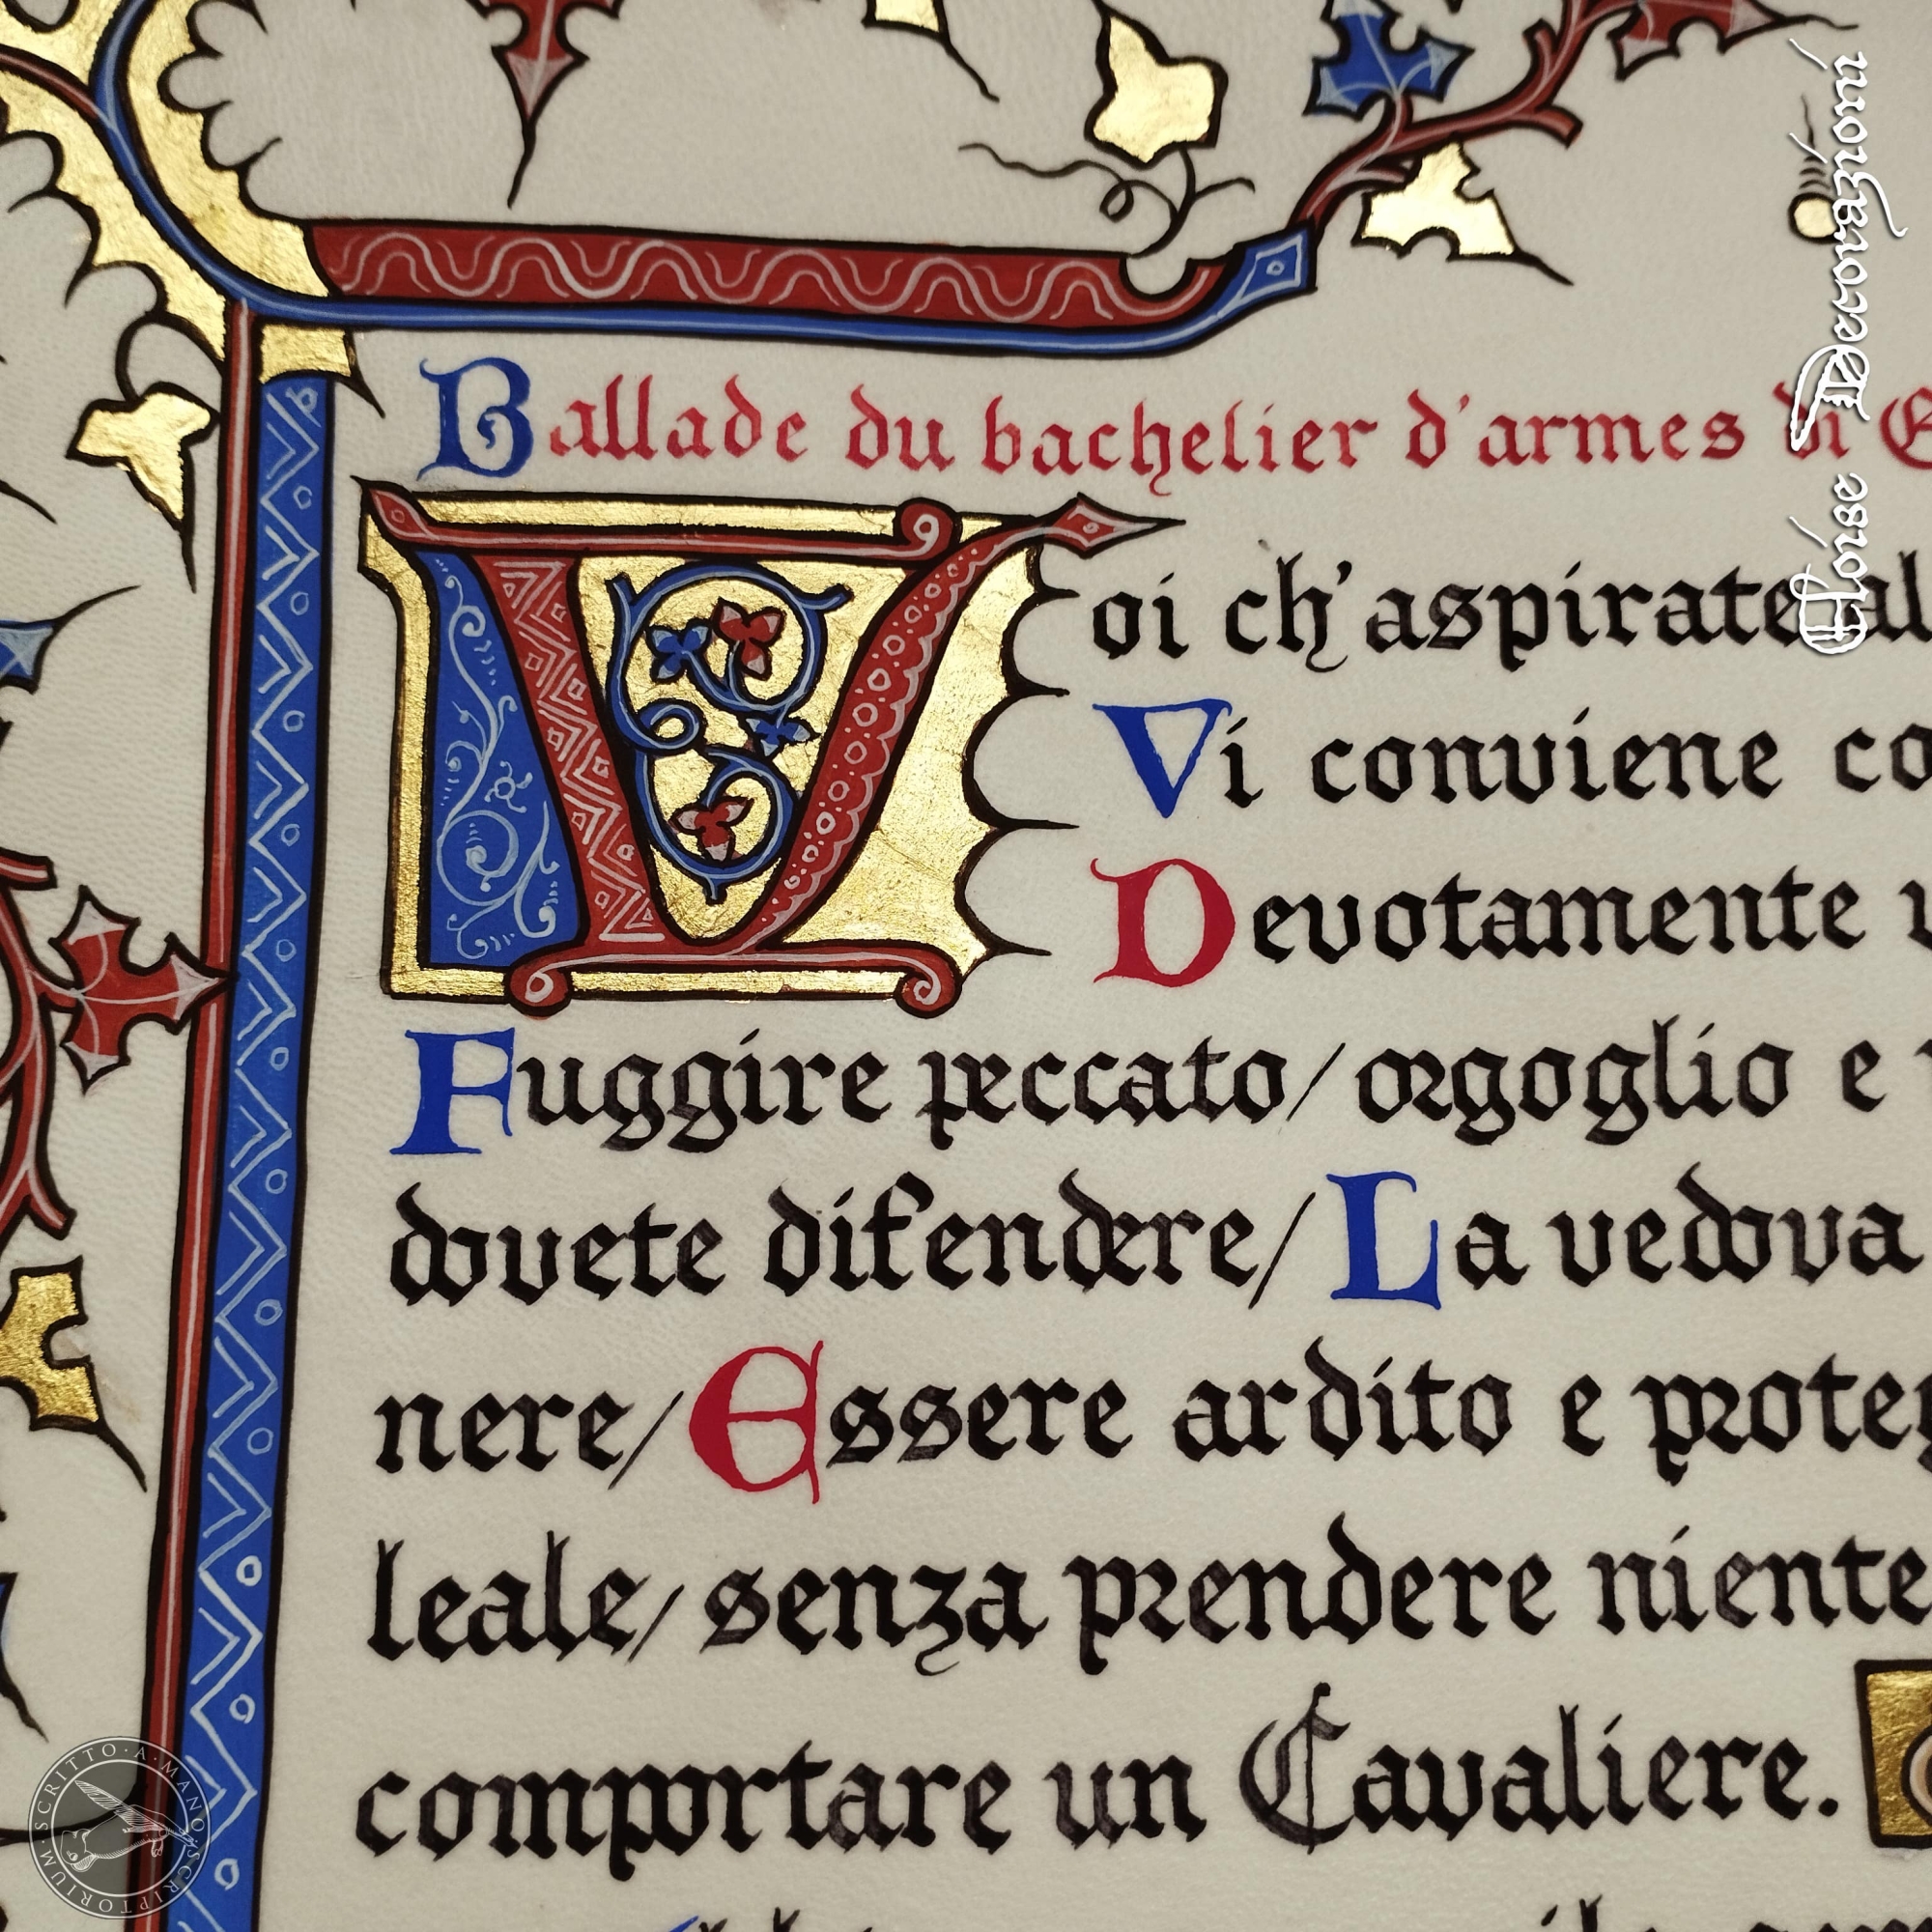 Ballade du bachelier d'armes di
Voi ch'aspirate al
Vi conviene co
Devotamente
Fuggire peccato/ orgoglio e
dovete difendere/ La vedova
nere/ Essere ardito e proteg
leale/ senza prendere niente
comportare un Cavaliere.
Eloise Decorazioni
SCRITTO·A·MANO·SCRIPTORIUM·